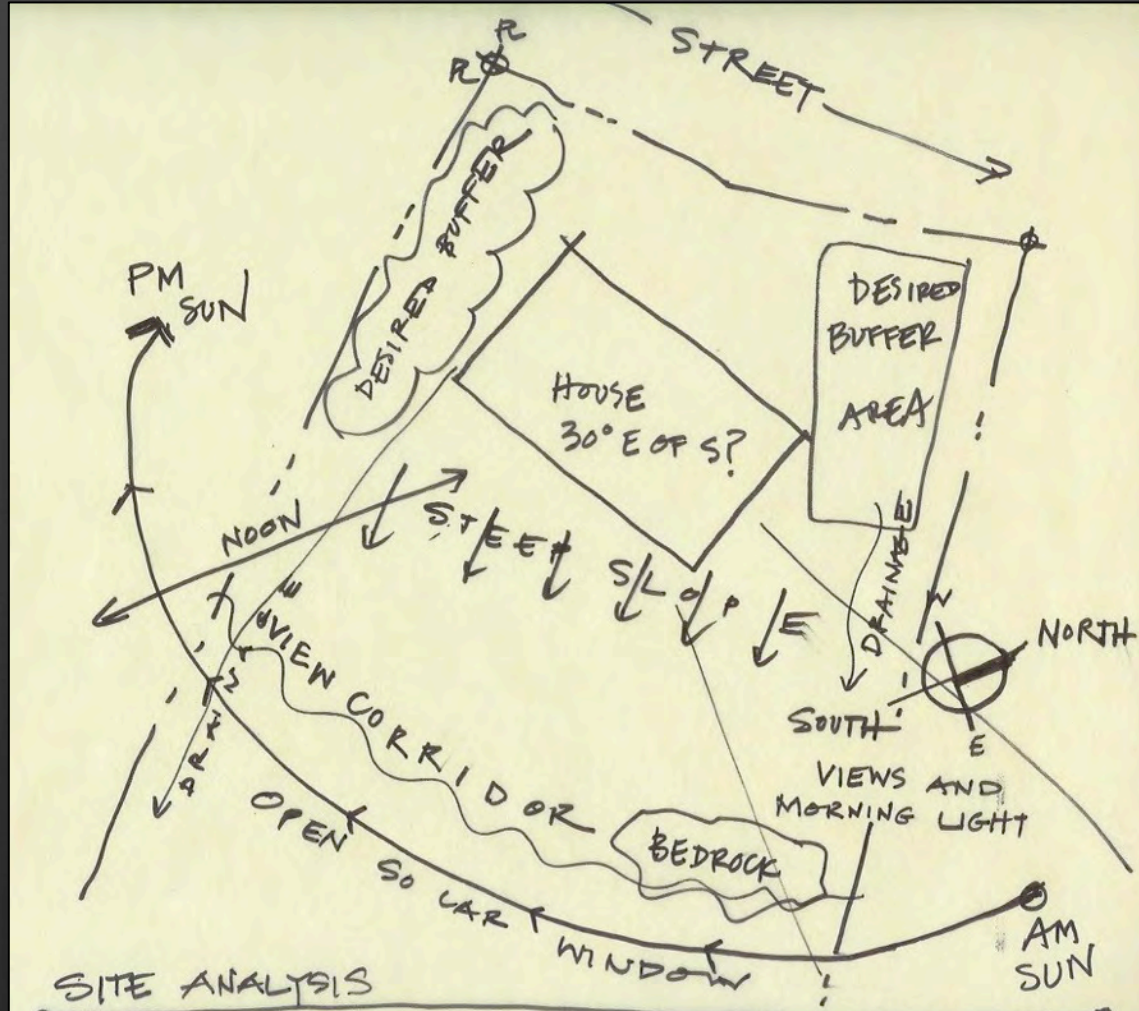 STREET
R
R
DESIRED BUFFER
PM
SUN
DESIRED
BUFFER
AREA
HOUSE
30° E OF S?
NOON
STEEP SLOPE
DRAINAGE
W
NORTH
SOUTH
E
VIEW CORRIDOR
VIEWS AND
MORNING LIGHT
OPEN SOLAR WINDOW
BEDROCK
AM
SUN
SITE ANALYSIS